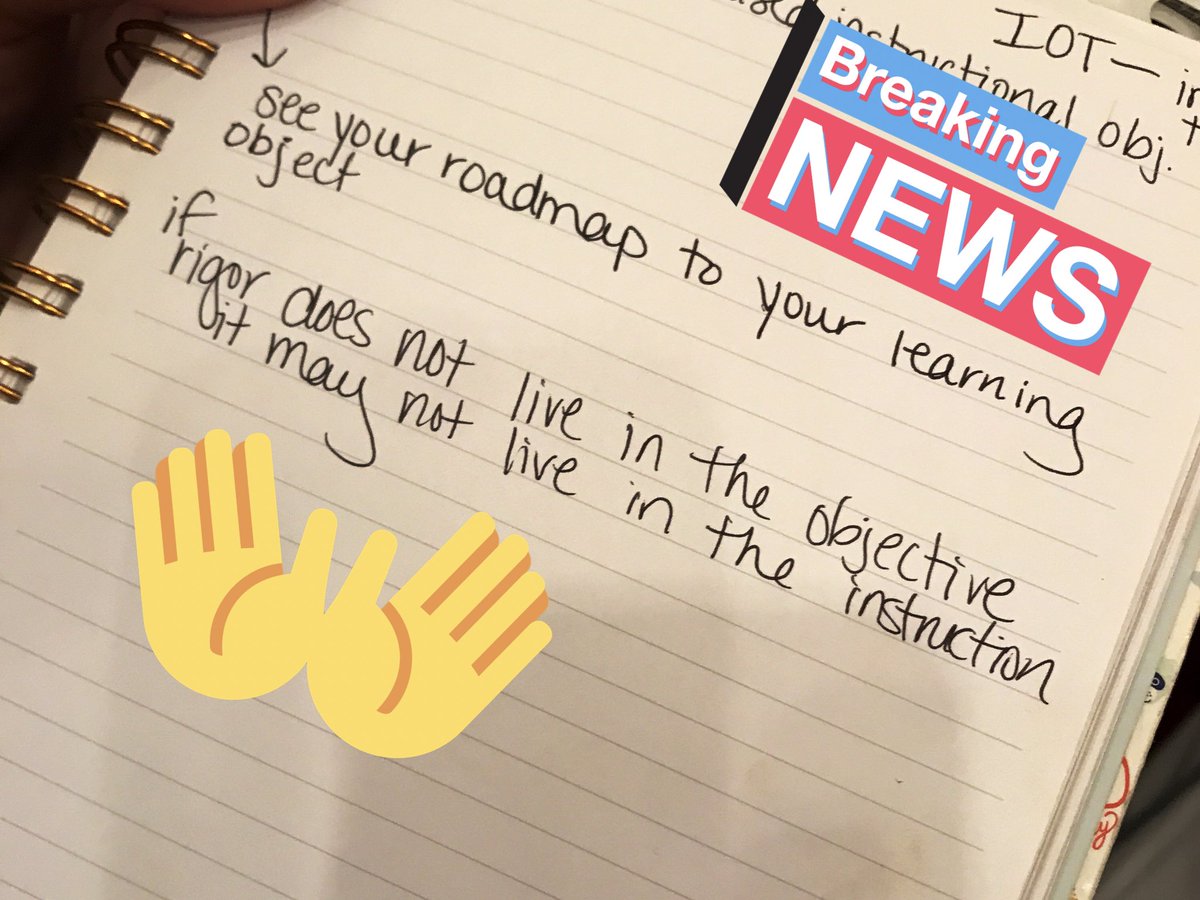 IOT —
instructional obj.
Breaking
NEWS
see your roadmap to your learning
object
if
rigor does not live in the objective
it may not live in the instruction